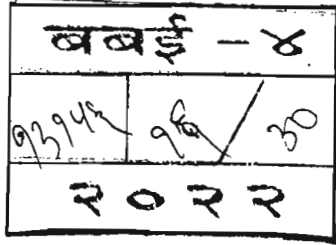 बबई - ४
१३१५६ १६ / ३०
२०२२